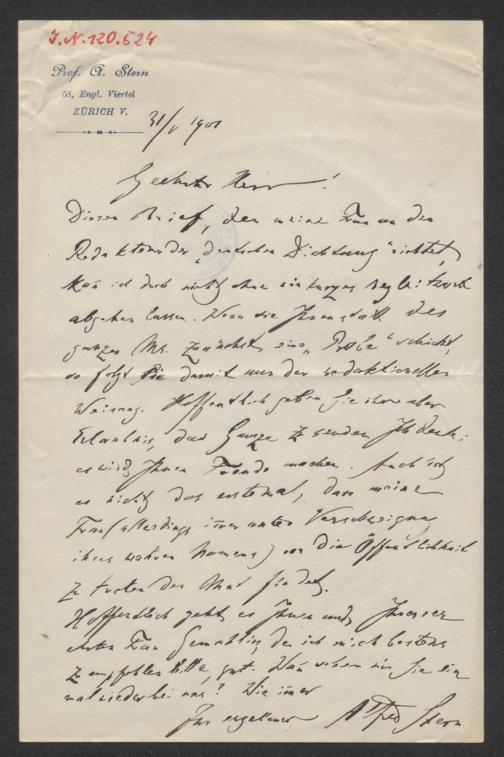 I.N. 120.524
Prof. A. Stern
58, Engl. Viertel
ZÜRICH V.
31/V 1901
Geehrter Herr!
Diesen Brief, den meine Frau an den
Redakteur der „deutschen Dichtung" richtet,
kan ich doch nicht ohne ein kurzes Begleitwort
abgehen lassen. Wenn sie Ihnen statt des
ganzen Ms. zunächst eine „Probe" schickt,
so folgt sie damit nur der redaktionellen
Weisung. Hoffentlich geben Sie ihr aber
Erlaubnis, das Ganze zu senden. Ich denke:
es wird Ihnen Freude machen. Auch ist
es nicht das erstemal, dass meine
Frau (allerdings imer unter Verschweigung
ihres wahren Namens) vor die Öffentlichkeit
zu treten den Mut findet.
Hoffentlich geht es Ihnen und Ihrer
Frau Gemahlin, der ich mich bestens
zu empfehlen bitte, gut. Wan sehen wir Sie ein
mal wieder bei uns? Wie imer
Ihr ergebener Alfred Stern